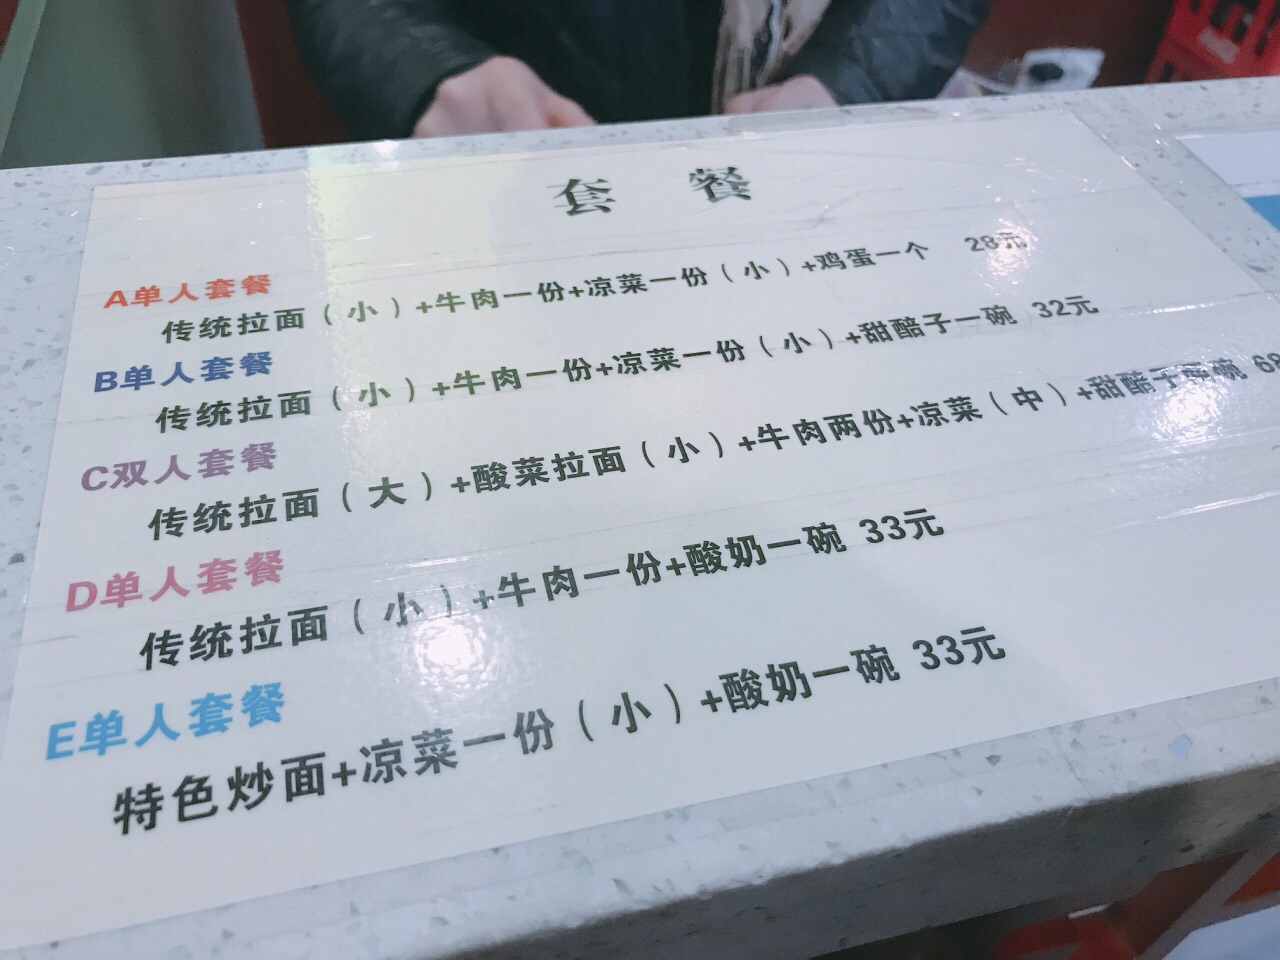 套 餐
A单人套餐
传统拉面（小）+牛肉一份+凉菜一份（小）+鸡蛋一个 28元
B单人套餐
传统拉面（小）+牛肉一份+凉菜一份（小）+甜醅子一碗 32元
C双人套餐
传统拉面（大）+酸菜拉面（小）+牛肉两份+凉菜（中）+甜醅子两碗 68
D单人套餐
传统拉面（小）+牛肉一份+酸奶一碗 33元
E单人套餐
特色炒面+凉菜一份（小）+酸奶一碗 33元